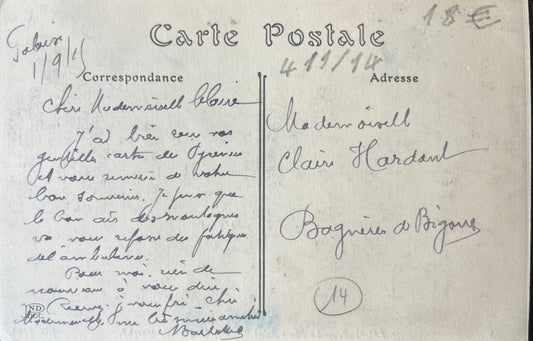 18 €
Carte Postale
1/9/15
411/14
Correspondance
Adresse
Chère Mademoiselle Claire
J'ai bien reçu vos
gentilles cartes des Pyrénées
et vous remercie de votre
bon souvenir. Je pense que
le bon air des montagnes
va vous reposer des fatigues
de l'ambulance.
Pour moi, rien de
nouveau à vous dire
je vous prie, chère
Mademoiselle, mes
Mademoiselle
Claire Hardant
Bagnères de Bigorre
14
ND